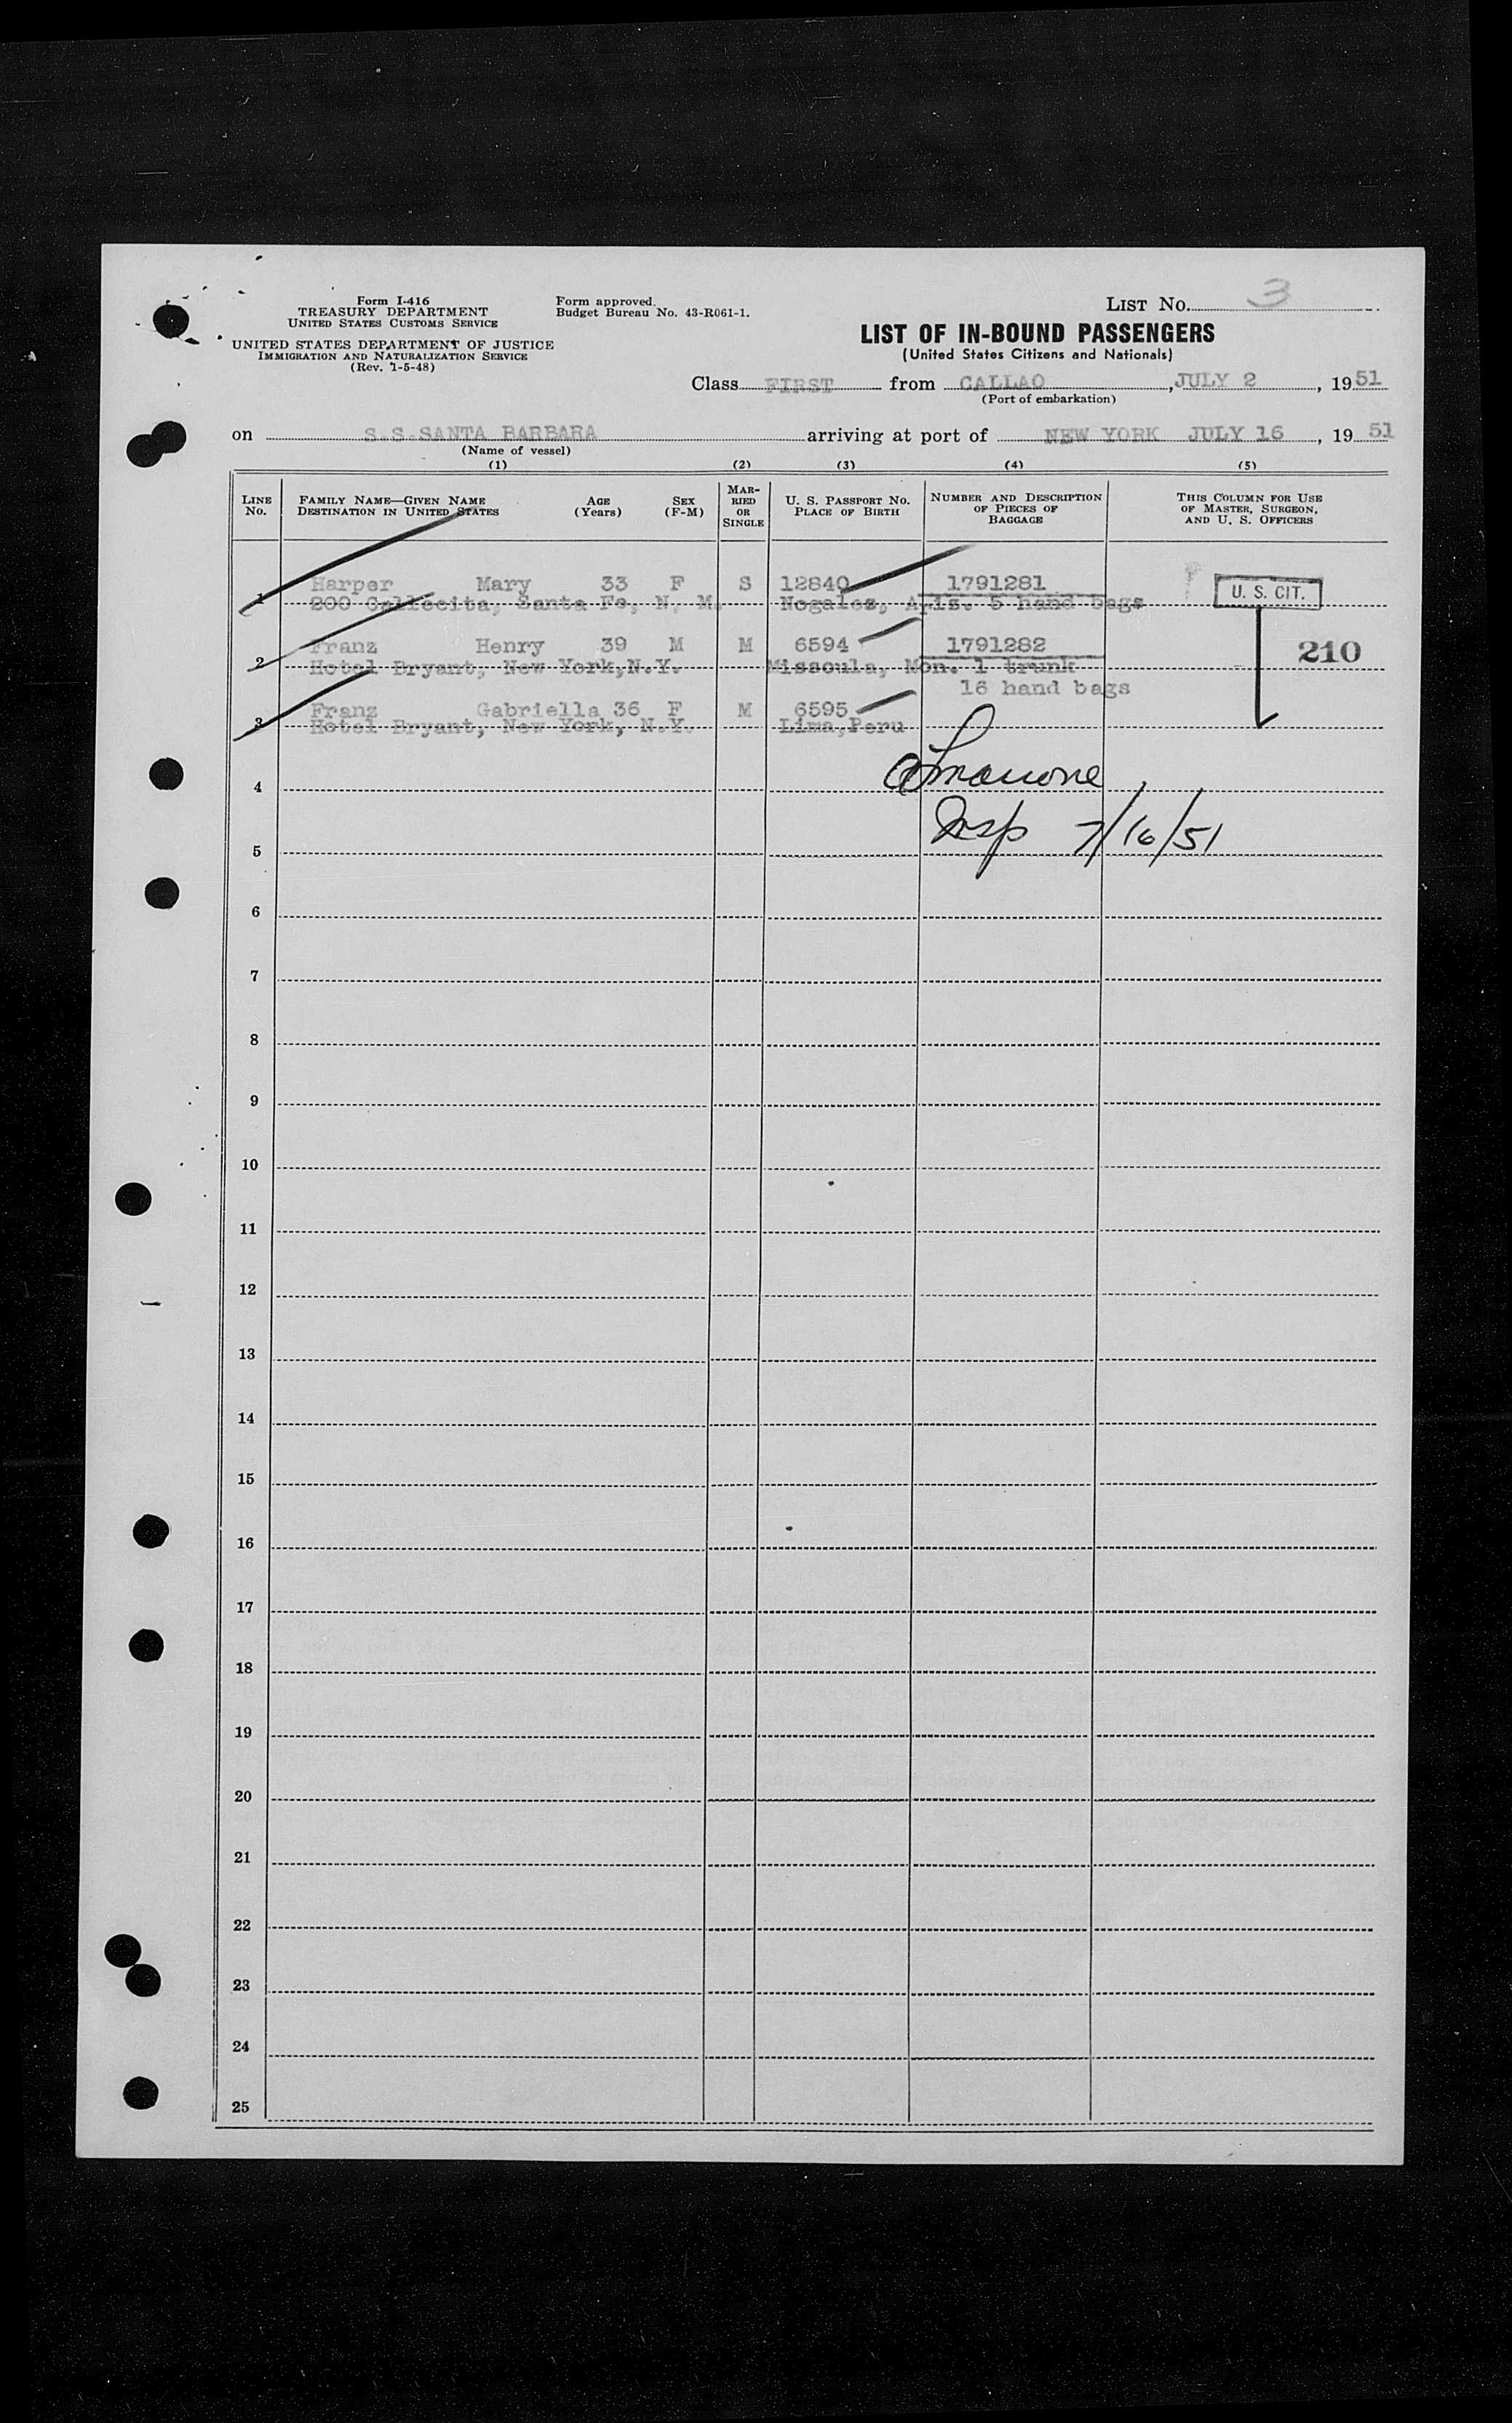 Form I-416
TREASURY DEPARTMENT
UNITED STATES CUSTOMS SERVICE
UNITED STATES DEPARTMENT OF JUSTICE
IMMIGRATION AND NATURALIZATION SERVICE
(Rev. 1-5-48)
Form approved.
Budget Bureau No. 43-R061-1.
LIST No. 3
LIST OF IN-BOUND PASSENGERS
(United States Citizens and Nationals)
Class FIRST from CALLAO, JULY 2, 1951
(Port of embarkation)
on S.S.SANTA BARBARA arriving at port of NEW YORK JULY 16, 1951
(Name of vessel)
(1) (2) (3) (4) (5)
LINE No. FAMILY NAME—GIVEN NAME DESTINATION IN UNITED STATES AGE (Years) SEX (F-M) MARRIED OR SINGLE U. S. PASSPORT No. PLACE OF BIRTH NUMBER AND DESCRIPTION OF PIECES OF BAGGAGE THIS COLUMN FOR USE OF MASTER, SURGEON, AND U. S. OFFICERS
1 Harper Mary 33 F S 12840 1791281 U. S. CIT.
200 Santa Fe, N. M. Nogales, Ariz. 5 hand bags
2 Franz Henry 39 M M 6594 1791282 210
Hotel Bryant, New York,N.Y. Missoula, Mon. 1 trunk
16 hand bags
3 Franz Gabriella 36 F M 6595
Hotel Bryant, New York, N.Y. Lima,Peru
4
Insp 7/16/51
5
6
7
8
9
10
11
12
13
14
15
16
17
18
19
20
21
22
23
24
25